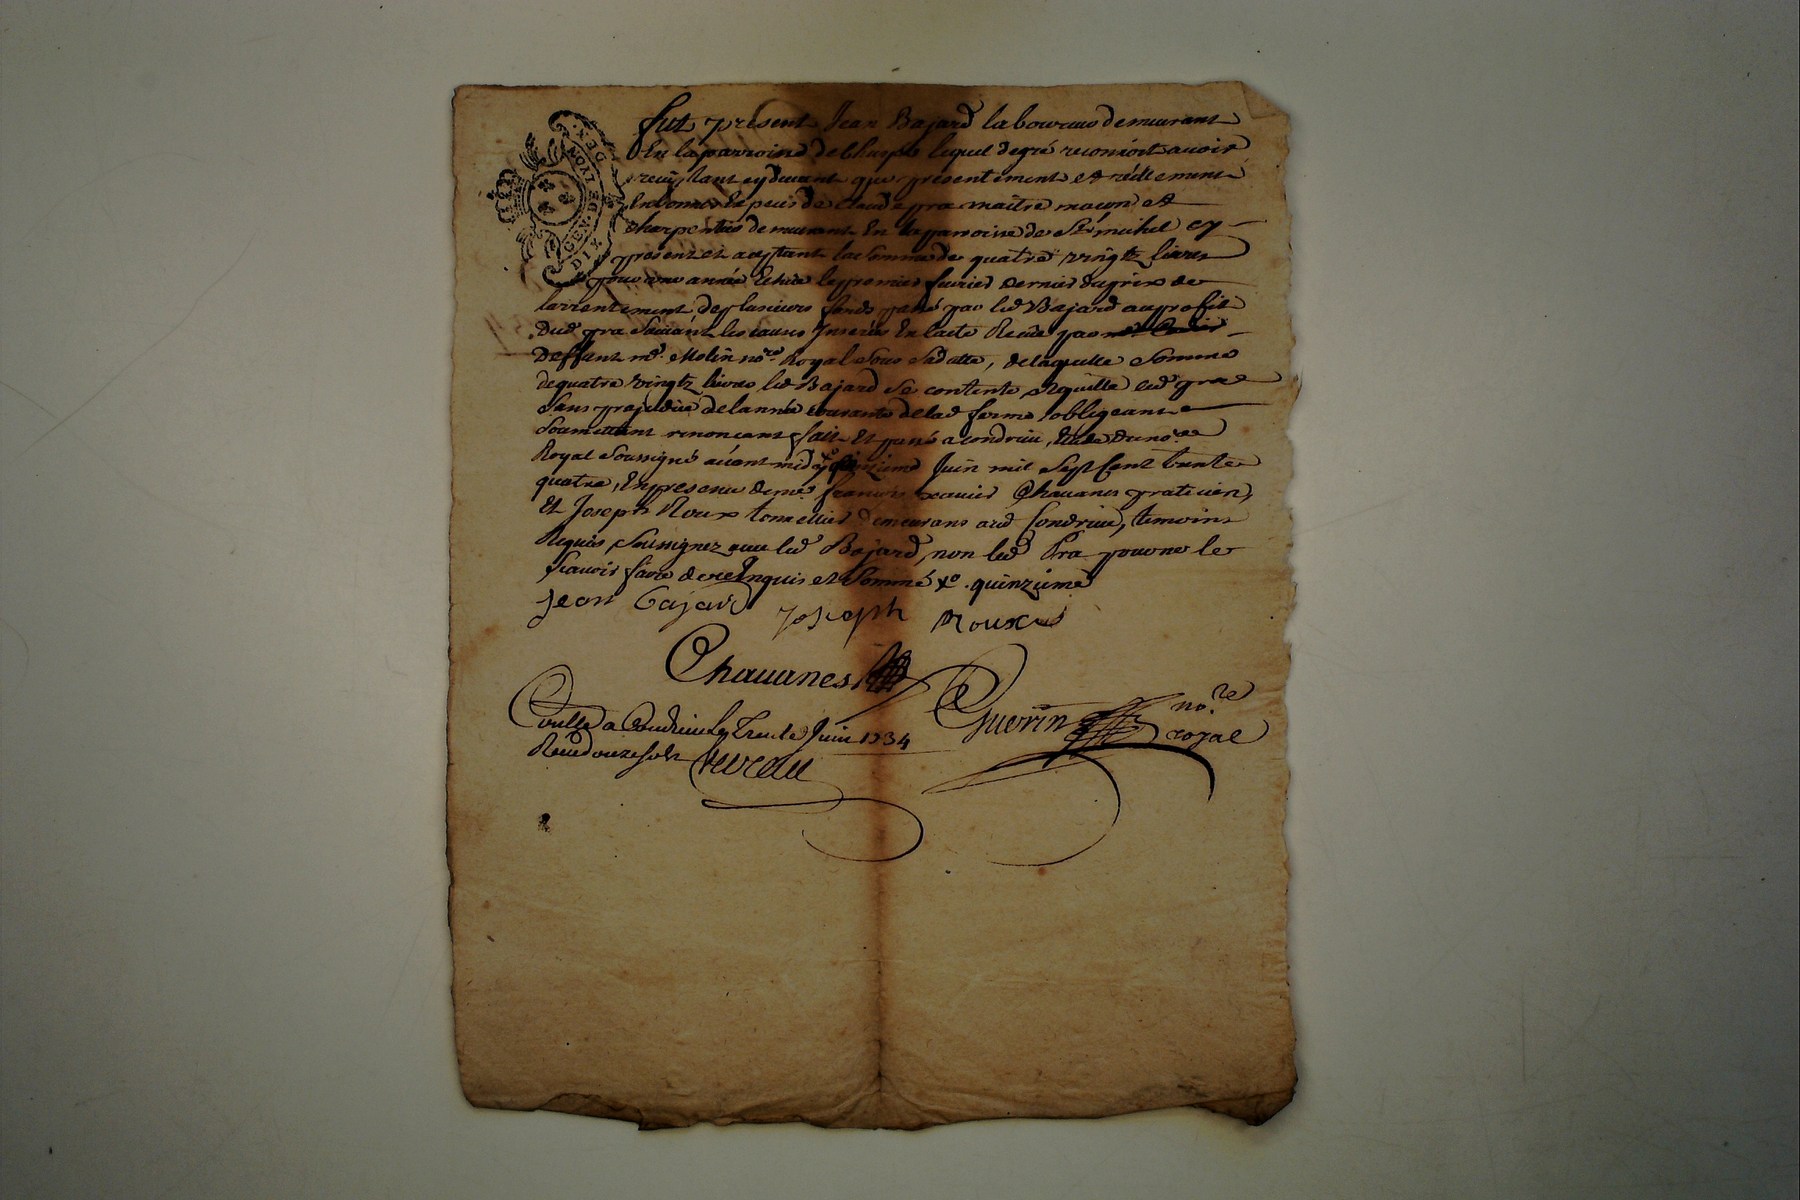 GEN. DE LYON. DE X.
DIX
fut present Jean Bajard laboureur demeurant
En la parroisse de Chuyes lequel de gré reconnoit avoir
receu tant cy devant que presentement et réellement
En bonnes Especes de Claude pra maitre masson et
charpentier demeurant En la parroisse de St michel cy
present et aceptant la somme de quatre vingtz livres
pour une année Echue le premier fevrier dernier du prix de
larrentement de plusieurs fonds passé par led Bajard au profit
dud pra suivant les causes Inserées En lacte Receu par
deffunt me Molin nore Royal sous sa datte, de laquelle somme
de quatre vingtz livres led Bajard se contente et quitte led pra
sans prejudice de lannée courante de lad ferme obligeant
soumettant renonçant fait Et passé a condrieu, Etude du nore
Royal soussigné avant midy xo Juin mil sept Cent trente
quatre, En presence de me françois xavier Chavanes praticien,
Et Joseph Roux tonnellier demeurans aud Condrieu, temoins
Requis soussignez avec led Bajard, non led Pra pour ne le
scavoir faire de ce Enquis et sommé xo. quinzieme
Jean Bajard Joseph Roux
Chavanes
Guerin nore royal
Conllé a Condrieu le Trente Juin 1734
Receu douze sols